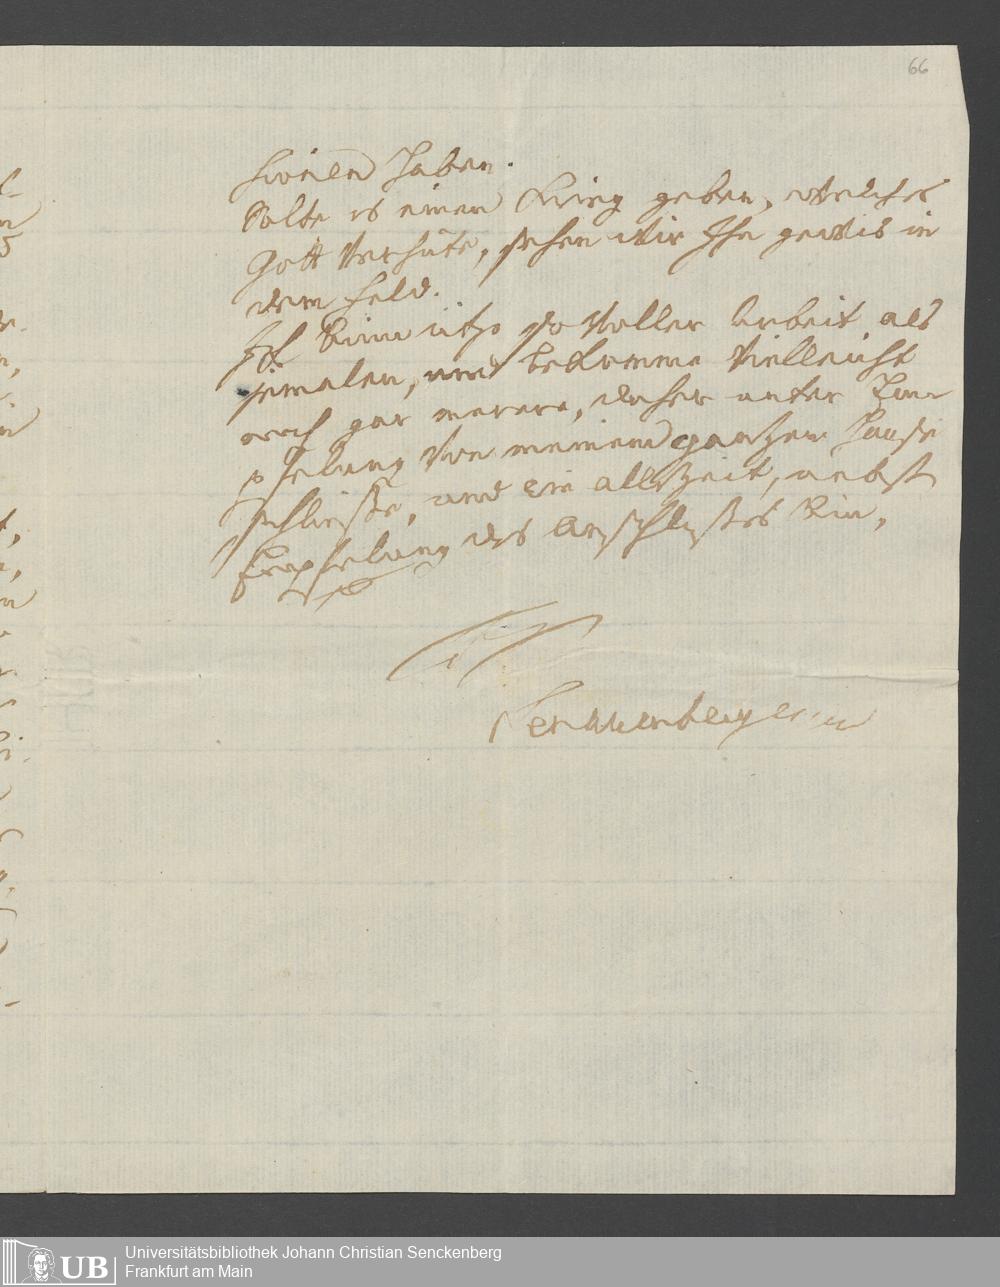 66
haben.
Solte es einen Krieg geben, welches
Gott Verhüte, sehen wir Ihn gewis in
dem Feld.
Ich bin itzo so Voller Arbeit als
jemalen, und bekomme Vielleicht
noch gar merere, daher unter Em-
pfelung Von meinem gantzen Hause
schliesse, und bin allezeit, nebst
Empfelung des
Universitätsbibliothek Johann Christian Senckenberg
Frankfurt am Main
UB